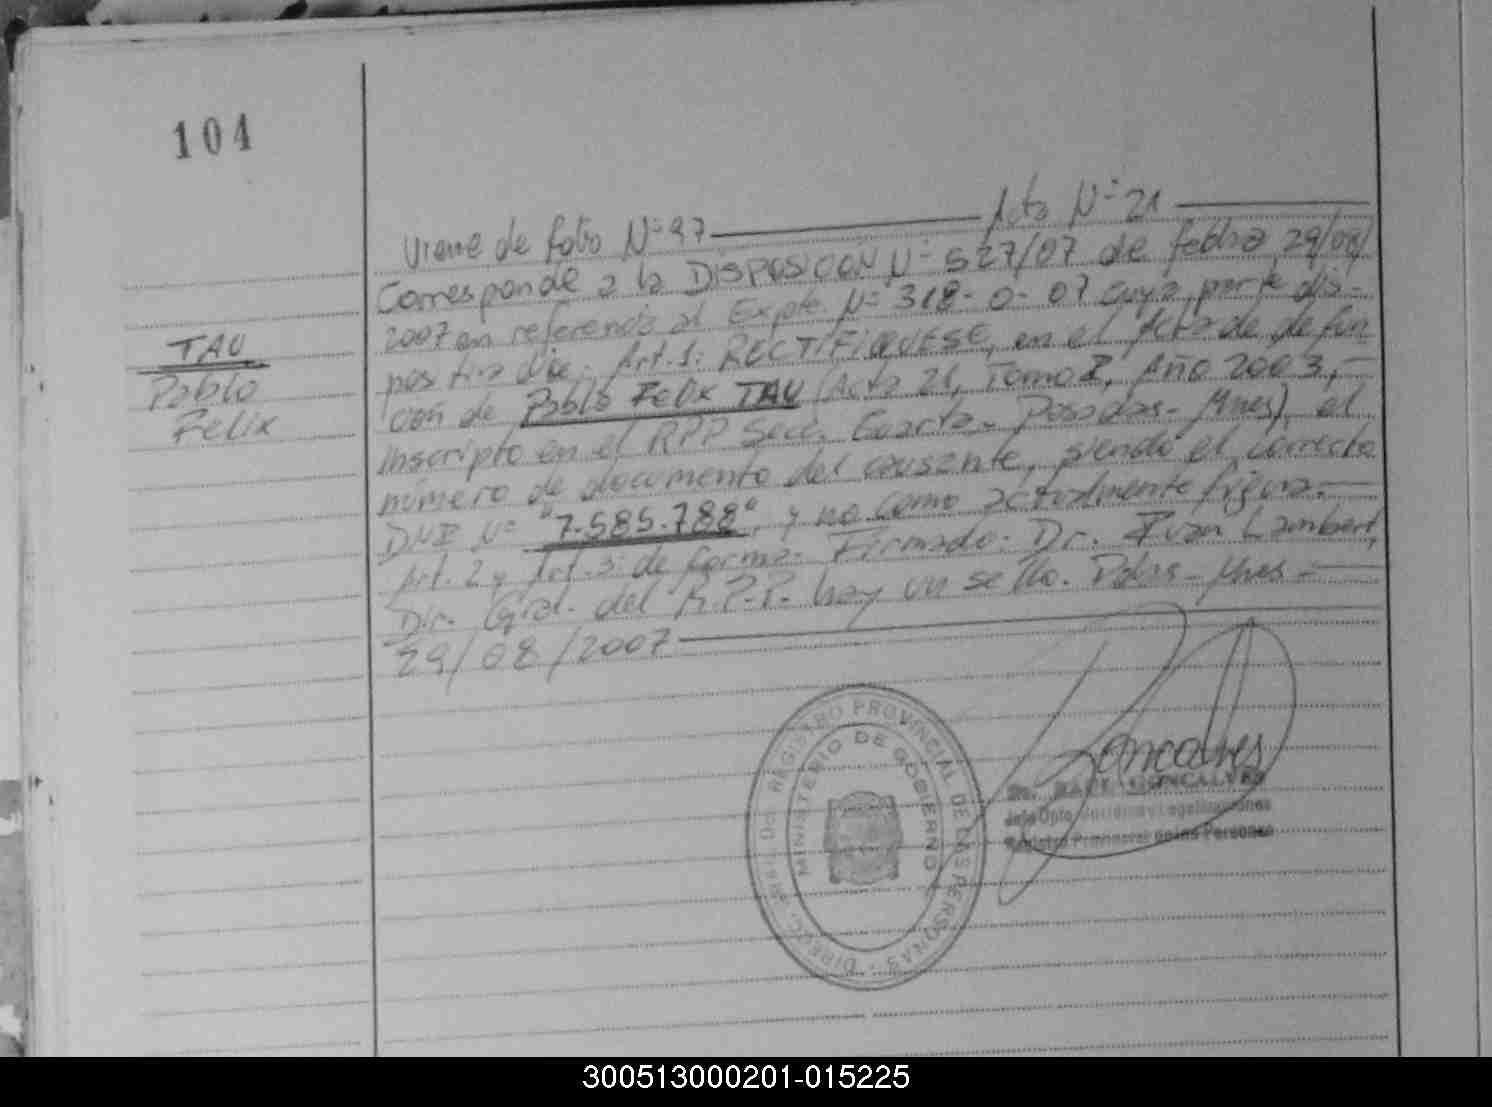 104
Viene de folio Nº 97 Acta Nº 21
Corresponde a la DISPOSICION Nº 527/07 de fecha 29/08/
2007 en referencia al Expte. Nº 318-0-07 cuya parte dis-
positiva dice: Art. 1: RECTIFIQUESE, en el Acta de defun
TAU
Pablo
Felix
ción de Pablo Felix TAU (Acta 21, Tomo I, Año 2003,
inscripto en el RPP Secc. Cuarta - Posadas - Mnes), el
número de documento del causante, siendo el correcto
DNI Nº "7.585.788", y no como actualmente figura.
Art. 2 y Art. 3: de forma. Firmado: Dr. Ivan Lambert,
Dir. Gral. del R.P.P. hay un sello. Pdas - Mnes -
29/08/2007
DIREC. GRAL. DEL REGISTRO PROVINCIAL DE LAS PERSONAS
MINISTERIO DE GOBIERNO
Goncalves
GONCALVES
Jefe Dpto. Legalizaciones
Registro Provincial de las Personas
300513000201-015225